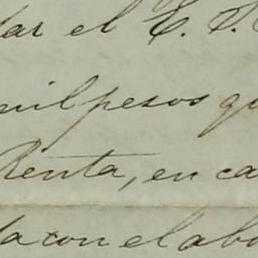 dar el E. S.
mil pesos qu
Renta, en ca
da con el abo